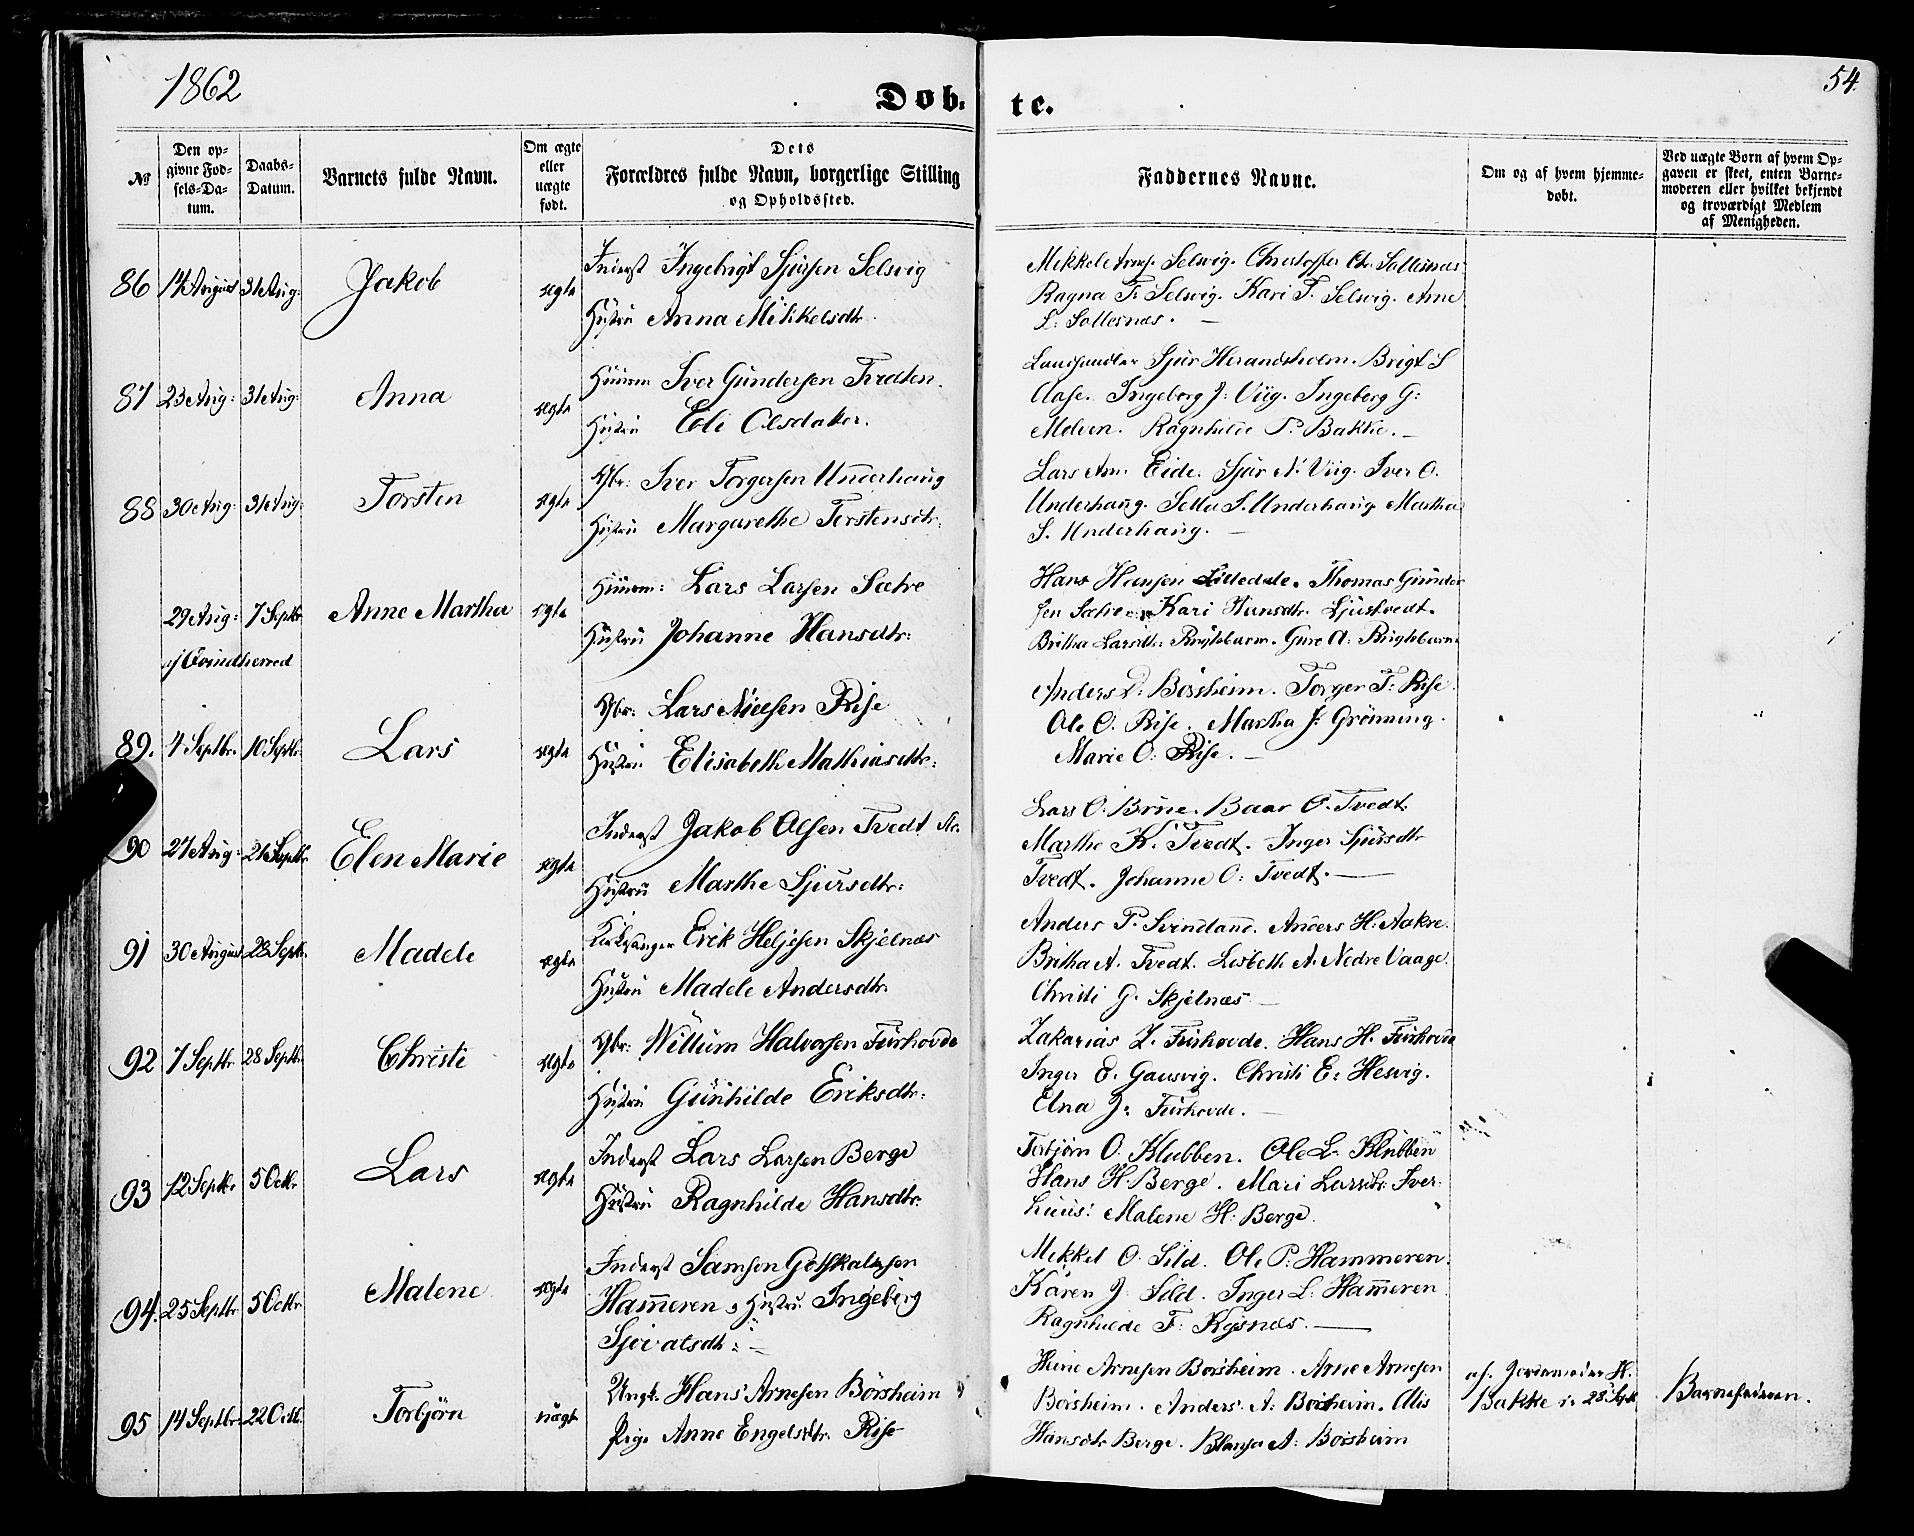 1862
Döb-
te.
54.
№
Den op-
givne Föd-
sels-Da-
tum.
Daabs-
Datum.
Barnets fulde Navn.
Om ægte
eller
uægte
født.
Dets
Forældres fulde Navn, borgerlige Stilling
og Opholdssted.
Faddernes Navne.
Om og af hvem hjemme-
døbt.
Ved uægte Børn af hvem Op-
gaven er skeet, enten Barne-
moderen eller hvilket bekjendt
og troværdigt Medlem
af Menigheden.
86 14 August 31 Aug: Jakob ægte
Inderst Ingebrigt Sjursen Selsvig
Hustru Anna Mikkelsdtr.
Mikkel Selsvig. Christoffer Sollesnæs
Ragna T: Selsvig. Kari T. Selsvig. Arne
L: Sollesnæs.
87 23 Aug: 31 Aug: Anna ægte
Huusm Iver Gundersen Tvedten.
Hustru Eli Olsdatter.
Landhandler Sjur Herandsholm. Brigt S
Aase. Ingeborg J: Viig. Ingeborg G:
Molven. Ragnhilde P: Bakke.
88 30 Aug: 31 Aug: Torsten ægte
Gbr: Iver Torgersen Underhaug
Hustru Margarethe Torstensdtr:
Lars Am. Eide. Sjur N. Viig. Iver O.
Underhaug. S. Underhaug Martha
S. Underhaug.
29 Aug: 7 Septbr Anne Martha ægte
i Qvindherred
Huusm: Lars Larsen Sætre
Hustru Johanne Hansdtr:
Hans Hansen Lilledale. Thomas Gunder
sen Sætre. Kari Hansdtr. Ljustvedt.
Britha Larsdtr. Gure A:
89. 4 Septbr. 10 Septbr. Lars ægte
Gbr: Lars Nielsen Rise
Hustru Elisabeth Mathiasdtr:
Anders D: Børsheim. Torger T: Rise.
Ole O. Rise. Martha J: Grönning.
Marie O: Rise.
90 27 Aug: 21 Septbr. Elen Marie ægte
Inderst Jakob Olsen Tvedt
Hustru Marthe Sjursdtr:
Lars O: Brue. Baar O. Tvedt.
Marthe K. Tvedt. Inger Sjursdtr
Tvedt. Johanne O: Tvedt.
91 30 August 28 Septbr. Madele ægte
Kirkesanger Erik Heljesen Skjelnæs
Hustru Madele Andersdtr.
Anders P. Svindland. Anders H. Aakre.
Britha A. Tvedt. Lisbeth A. Nedre Vaage.
Christi G. Skjelnæs
92 7 Septbr 28 Septbr. Christi ægte
Gbr: Willum Halvorsen Furhovde
Hustru Gunhilde Eriksdtr:
Zakarias Z. Furhovde. Hans H. Furhovde
Inger E. Gausvig. Christi E: Hesvig.
Elna J: Furhovde.
93 12 Septbr 5 Octbr Lars ægte
Inderst Lars Larsen Berge
Hustru Ragnhilde Hansdtr.
Torbjørn O. Klubben. Ole L. Klubben
Hans H. Berge. Mari Larsdtr. Tver-
huus: Malene H: Berge.
94. 25 Septbr 5 Octbr Malene. ægte
Inderst Samson Gotskalksen
Hammeren, Hustru Ingeborg
Sjovatsdtr:
Mikkel O. Sild. Ole P: Hammeren.
Karen J. Sild. Inger L: Hammeren.
Ragnhilde T: Kysnæs.
95 14 Septbr. 22 Octb. Torbjørn uægte
Ungk. Hans Arnesen Börsheim
Pige Anne Engelsdtr. Rise
Heine Arnesen Börsheim. Arne Arnesen
Börsheim. Anders A: Börsheim. Alis
Hansdtr Berge. A: Börsheim
af. Jordemoder H.
Bakke d. 28 Septbr
Barnefaderen.